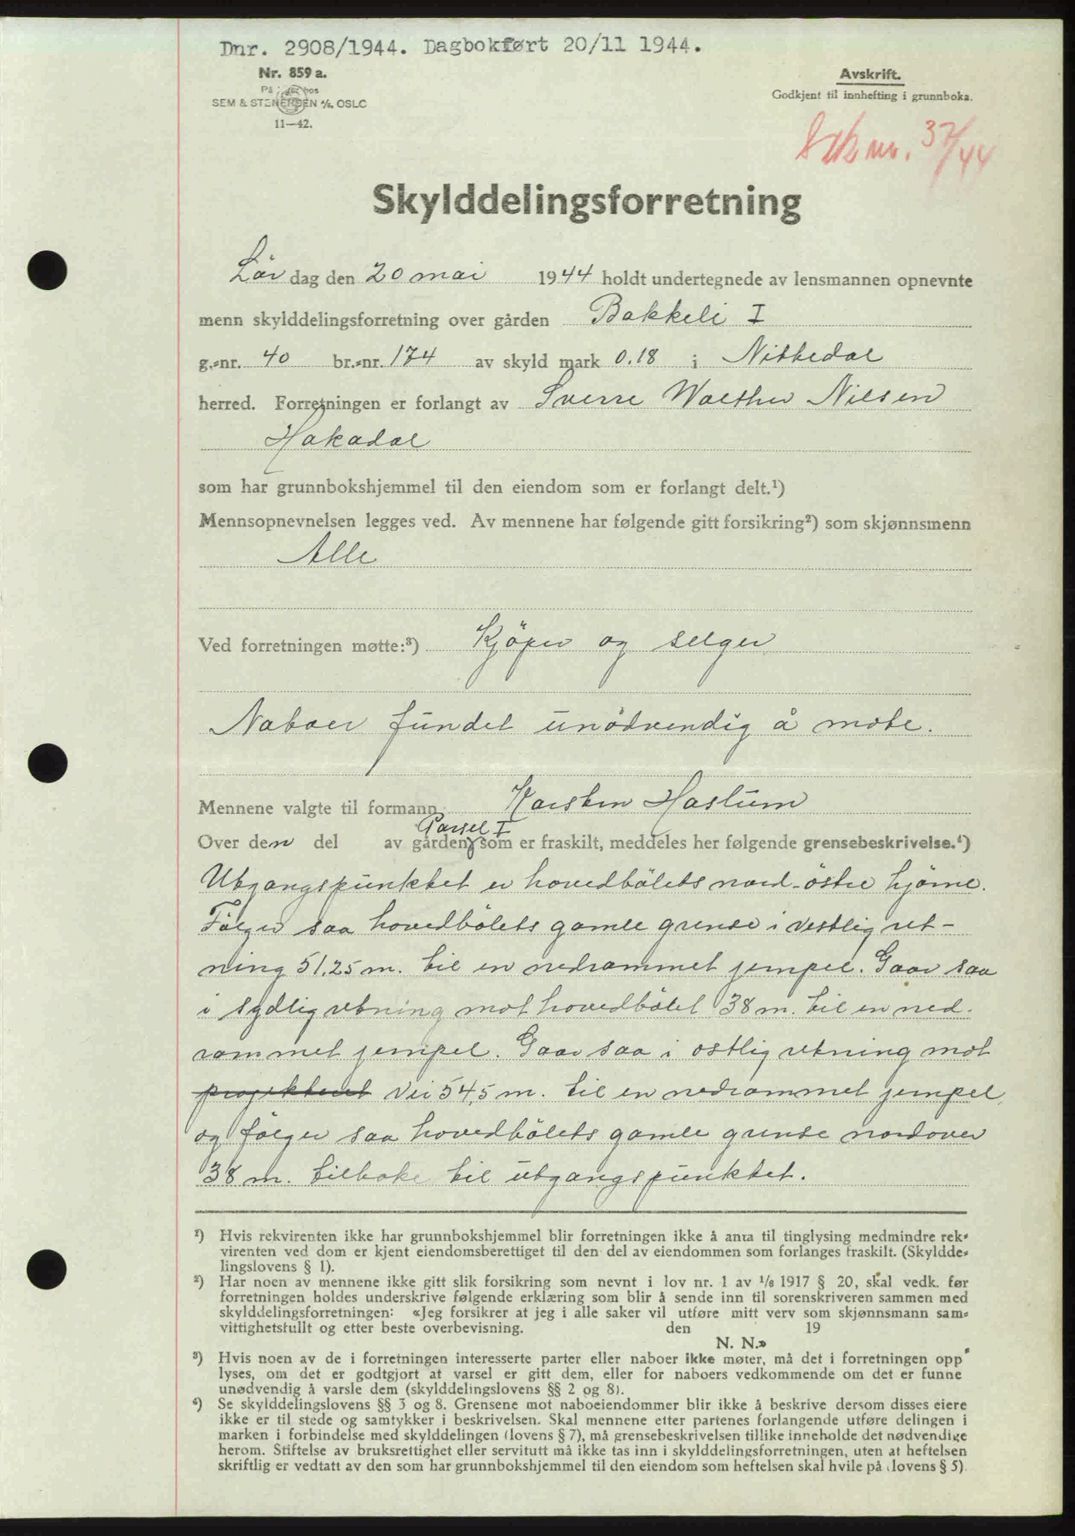 Dnr. 2908/1944. Dagbokført 20/11 1944.
Nr. 859 a.
SEM & STENERSEN A/S. OSLO
11—42.
Avskrift.
Godkjent til innhefting i grunnboka.
37/44
Skylddelingsforretning
Lör dag den 20 mai 1944 holdt undertegnede av lensmannen opnevnte
menn skylddelingsforretning over gården Bakkeli I
g.-nr. 40 br.-nr. 174 av skyld mark 0.18 i Nittedal
herred. Forretningen er forlangt av Sverre Walther Nilsen
Hakadal
som har grunnbokshjemmel til den eiendom som er forlangt delt.¹)
Mennsopnevnelsen legges ved. Av mennene har følgende gitt forsikring²) som skjønnsmenn
Alle
Ved forretningen møtte:³) Kjöper og selger
Naboer fundet unödvendig å møte.
Mennene valgte til formann Karsten Haslum
Parsel I
Over den del av gården, som er fraskilt, meddeles her følgende grensebeskrivelse.⁴)
Utgangspunktet er hovedbölets nord-östre hjörne.
Fölger saa hovedbölets gamle grense i vestlig ret-
ning 51.25 m. til en nedrammet jernpel. Gaar saa
i sydlig retning mot hovedbölet 38 m. til en ned-
rammet jernpel. Gaar saa i østlig retning mot
projektert vei 54,5 m. til en nedrammet jernpel,
og fölger saa hovedbölets gamle grense nordover
38 m. tilbake til utgangspunktet.
¹) Hvis rekvirenten ikke har grunnbokshjemmel blir forretningen ikke å anta til tinglysing medmindre rek-
virenten ved dom er kjent eiendomsberettiget til den del av eiendommen som forlanges fraskilt. (Skyldde-
lingslovens § 1).
²) Har noen av mennene ikke gitt slik forsikring som nevnt i lov nr. 1 av 1/6 1917 § 20, skal vedk. før
forretningen holdes underskrive følgende erklæring som blir å sende inn til sorenskriveren sammen med
skylddelingsforretningen: «Jeg forsikrer at jeg i alle saker vil utføre mitt verv som skjønnsmann sam-
vittighetsfullt og etter beste overbevisning. den 19
N. N.»
³) Hvis noen av de i forretningen interesserte parter eller naboer ikke møter, må det i forretningen opp-
lyses, om det er godtgjort at varsel er gitt dem, eller for naboers vedkommende om det er funne
unødvendig å varsle dem (skylddelingslovens §§ 2 og 8).
⁴) Se skylddelingslovens §§ 3 og 8. Grensene mot naboeiendommer blir ikke å beskrive dersom disses eiere
ikke er til stede og samtykker i beskrivelsen. Skal mennene etter partenes forlangende utføre delingen i
marken i forbindelse med skylddelingen (lovens § 7), må grensebeskrivelsen tillike inneholde det nødvendige
herom. Stiftelse av bruksrettighet eller servitutt må ikke tas inn i skylddelingsforretningen, uten at heftelsen
skriftlig er vedtatt av den som har grunnbokshjemmel til den eiendom som heftelsen skal hvile på (lovens § 5).